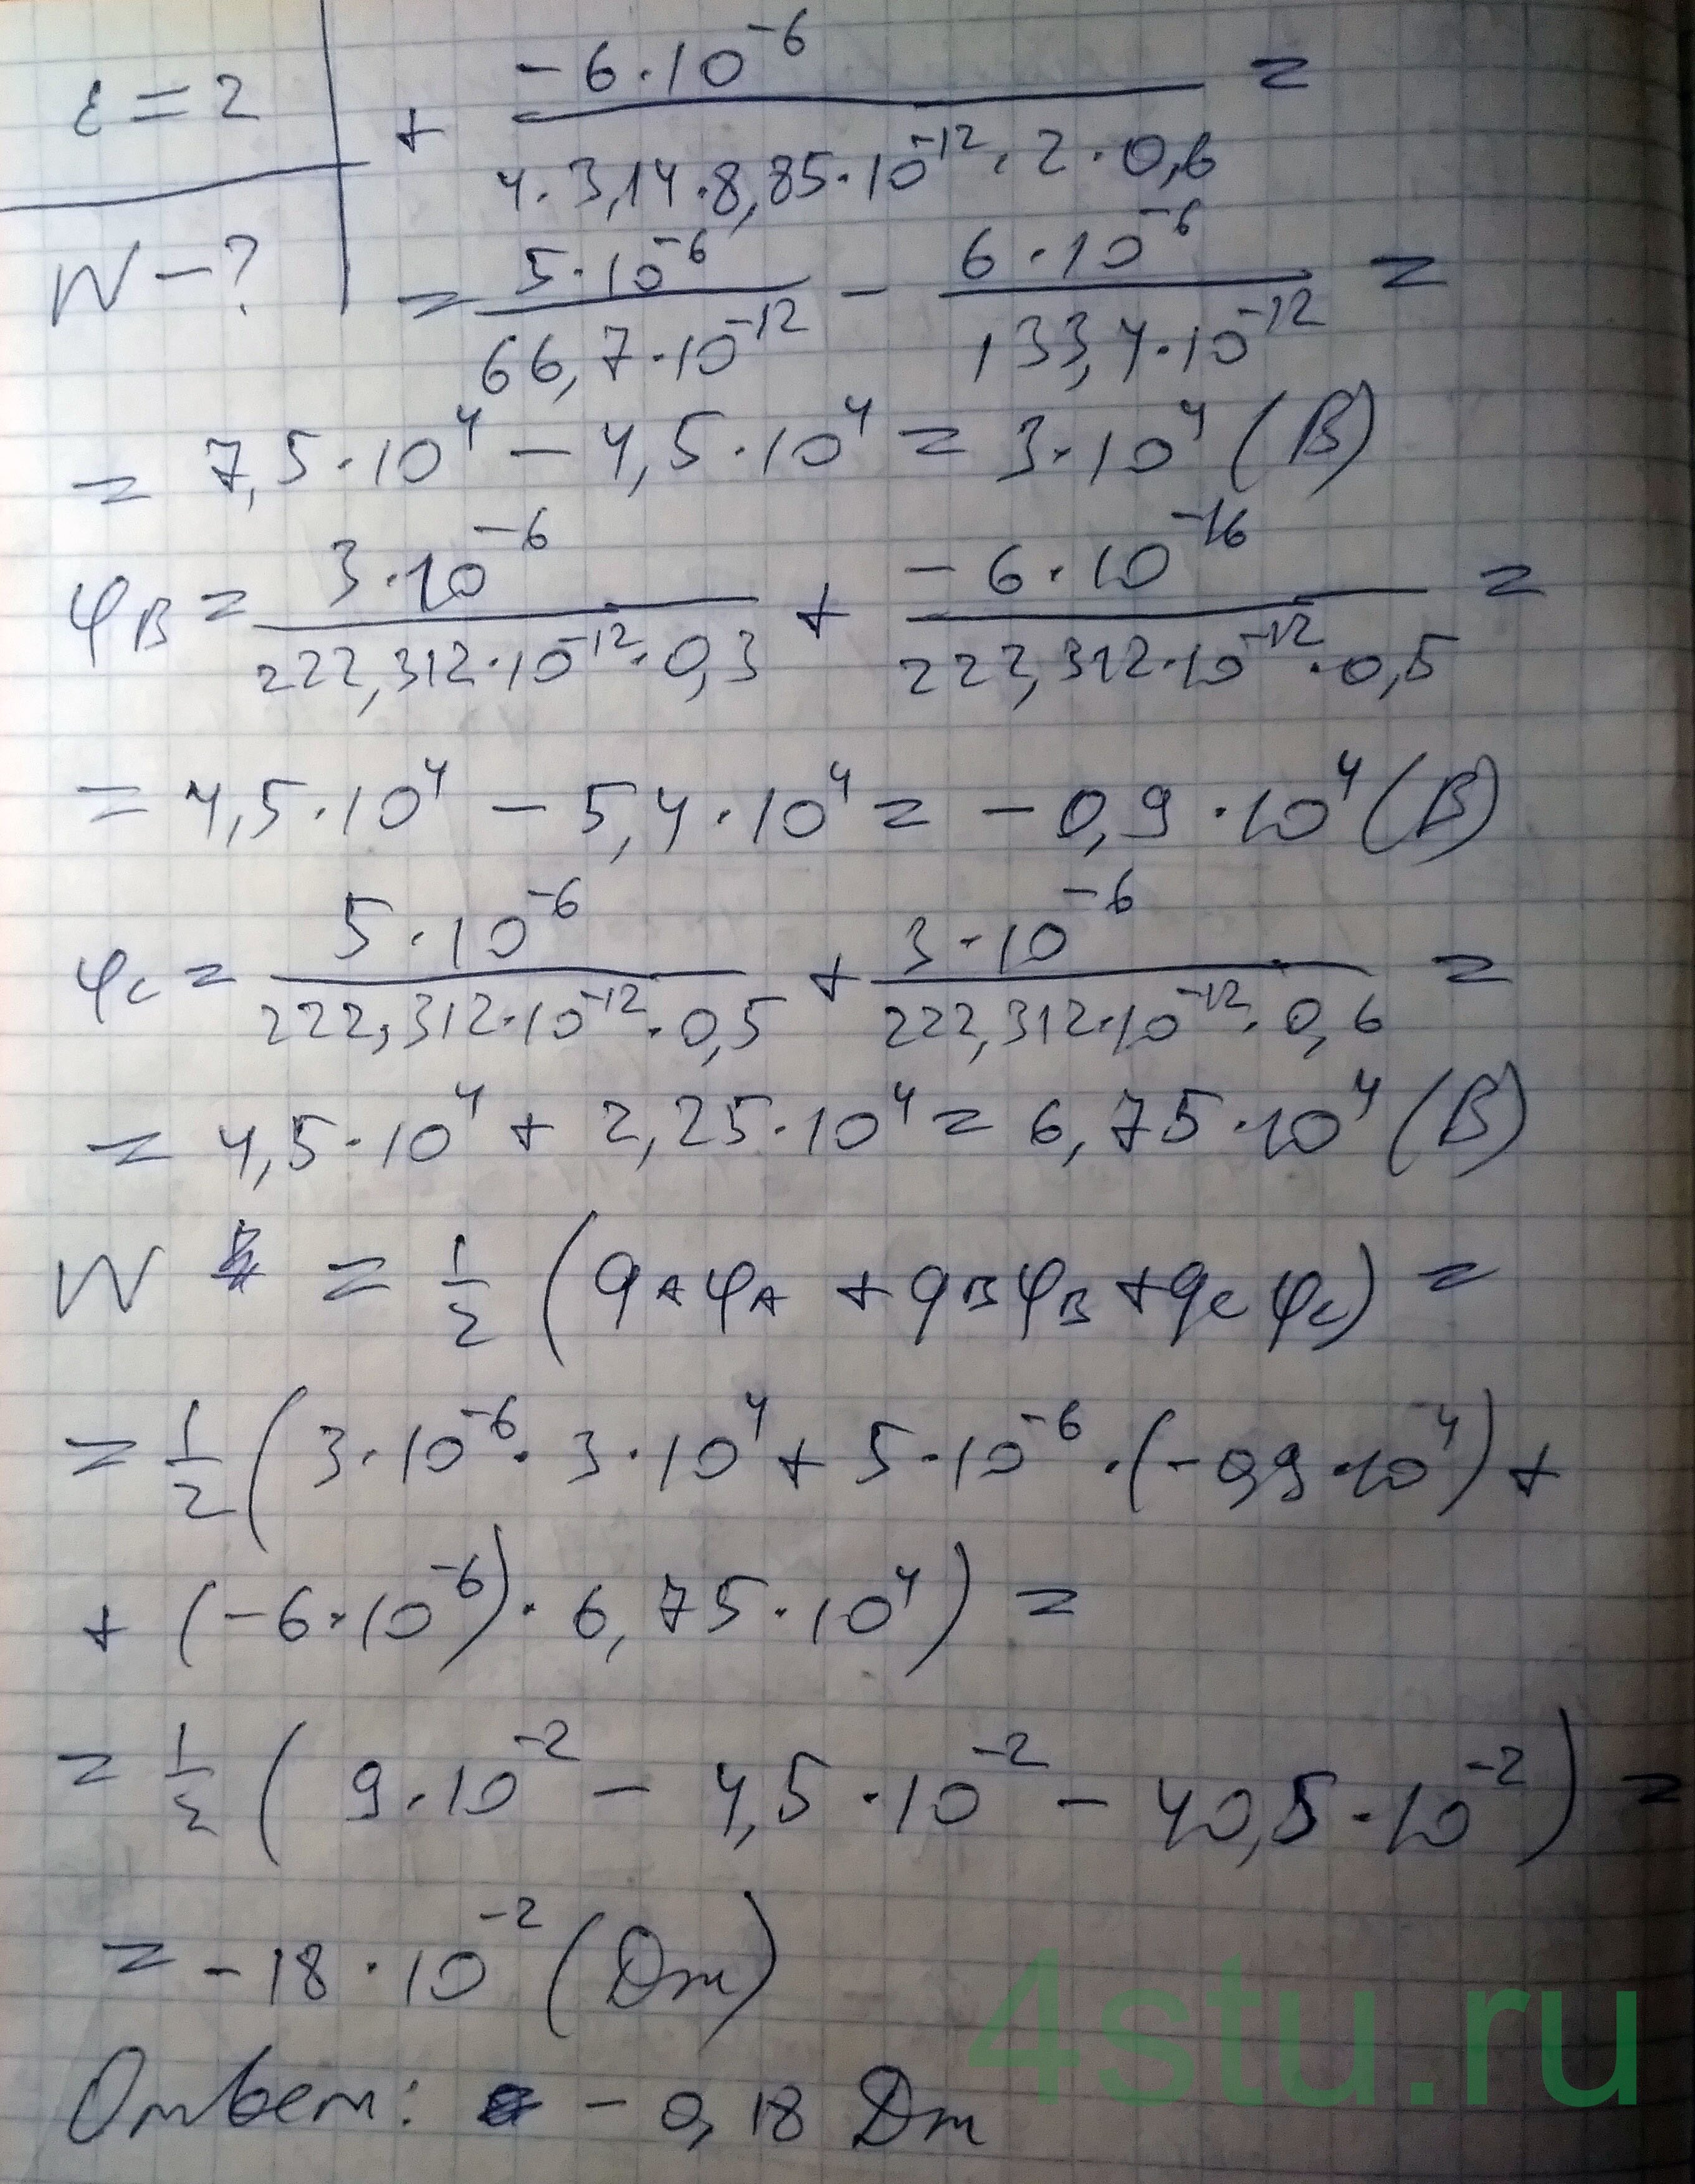 ε = 2
+ (-6·10^-6)/(4·3,14·8,85·10^-12·2·0,6) =
W - ?
= (5·10^-6)/(66,7·10^-12) - (6·10^-6)/(133,4·10^-12) =
= 7,5·10^4 - 4,5·10^4 = 3·10^4 (В)
φB = (3·10^-6)/(222,312·10^-12·0,3) + (-6·10^-16)/(222,312·10^-12·0,5) =
= 4,5·10^4 - 5,4·10^4 = -0,9·10^4 (В)
φC = (5·10^-6)/(222,312·10^-12·0,5) + (3·10^-6)/(222,312·10^-12·0,6) =
= 4,5·10^4 + 2,25·10^4 = 6,75·10^4 (В)
W = 1/2 (qAφA + qBφB + qCφC) =
= 1/2 (3·10^-6·3·10^4 + 5·10^-6·(-0,9·10^4) +
+ (-6·10^-6)·6,75·10^4) =
= 1/2 (9·10^-2 - 4,5·10^-2 - 40,5·10^-2) =
= -18·10^-2 (Дж)
Ответ: -0,18 Дж
4stu.ru